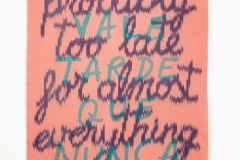 probably
VALE
too late
TARDE
for almost
QUE
everything
NUNCA